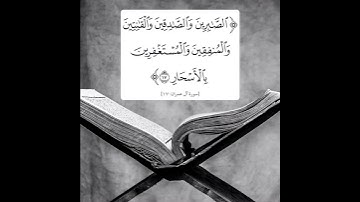 ﴿ٱلصَّٰبِرِينَ وَٱلصَّٰدِقِينَ وَٱلۡقَٰنِتِينَ
وَٱلۡمُنفِقِينَ وَٱلۡمُسۡتَغۡفِرِينَ
بِٱلۡأَسۡحَارِ ١٧﴾
[سورة آل عمران: ١٧]